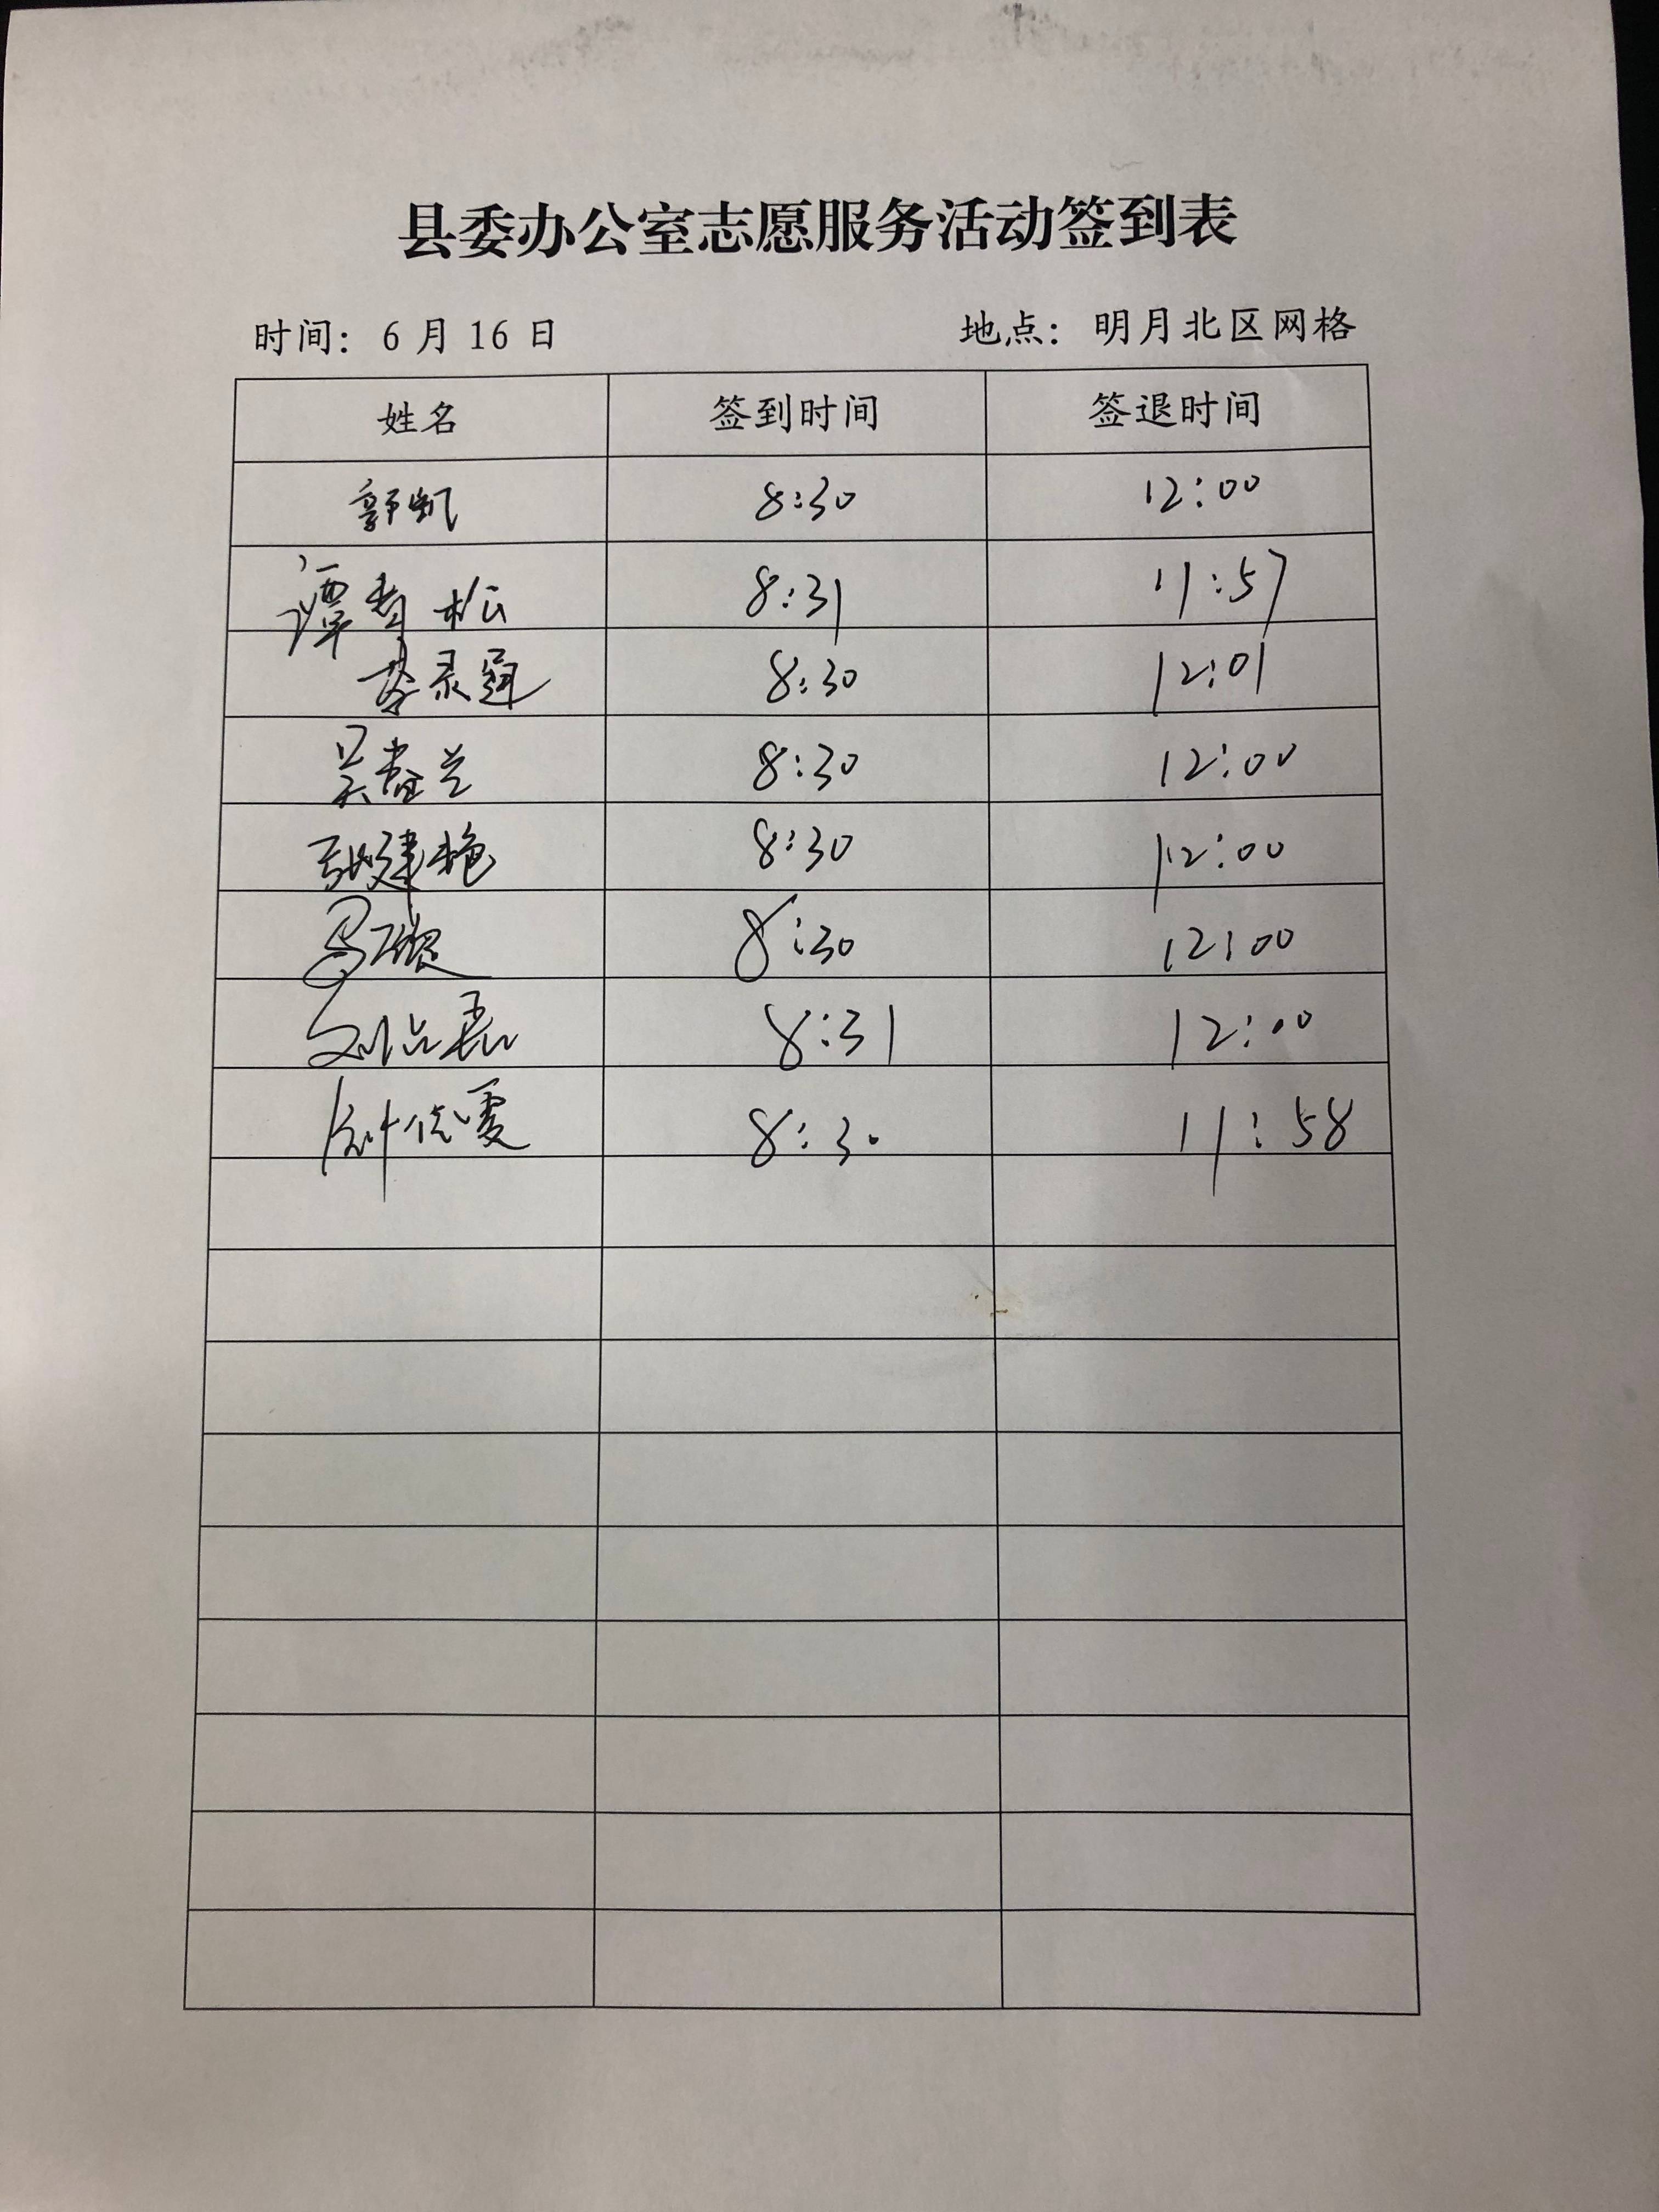 县委办公室志愿服务活动签到表
时间：6月16日 地点：明月北区网格
姓名 签到时间 签退时间
郭凯 8:30 12:00
谭青松 8:31 11:57
李录通 8:30 12:01
吴春兰 8:30 12:00
张建艳 8:30 12:00
马 8:30 12:00
刘 8:31 12:00
8:30 11:58